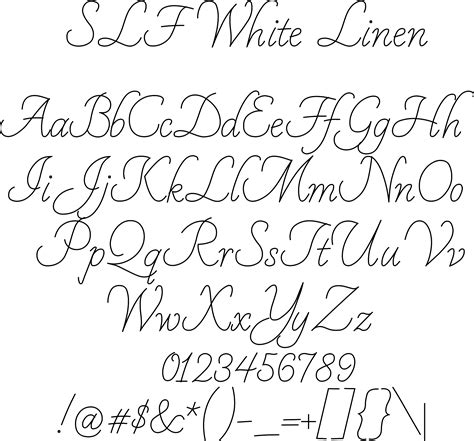 SLF White Linen
AaBbCcDdEeFfGgHh
IiJjKkLlMmNnOo
PpQqRrSsTtUuVv
WwXxYyZz
0123456789
!@#$&*()-_=+[]{}\|